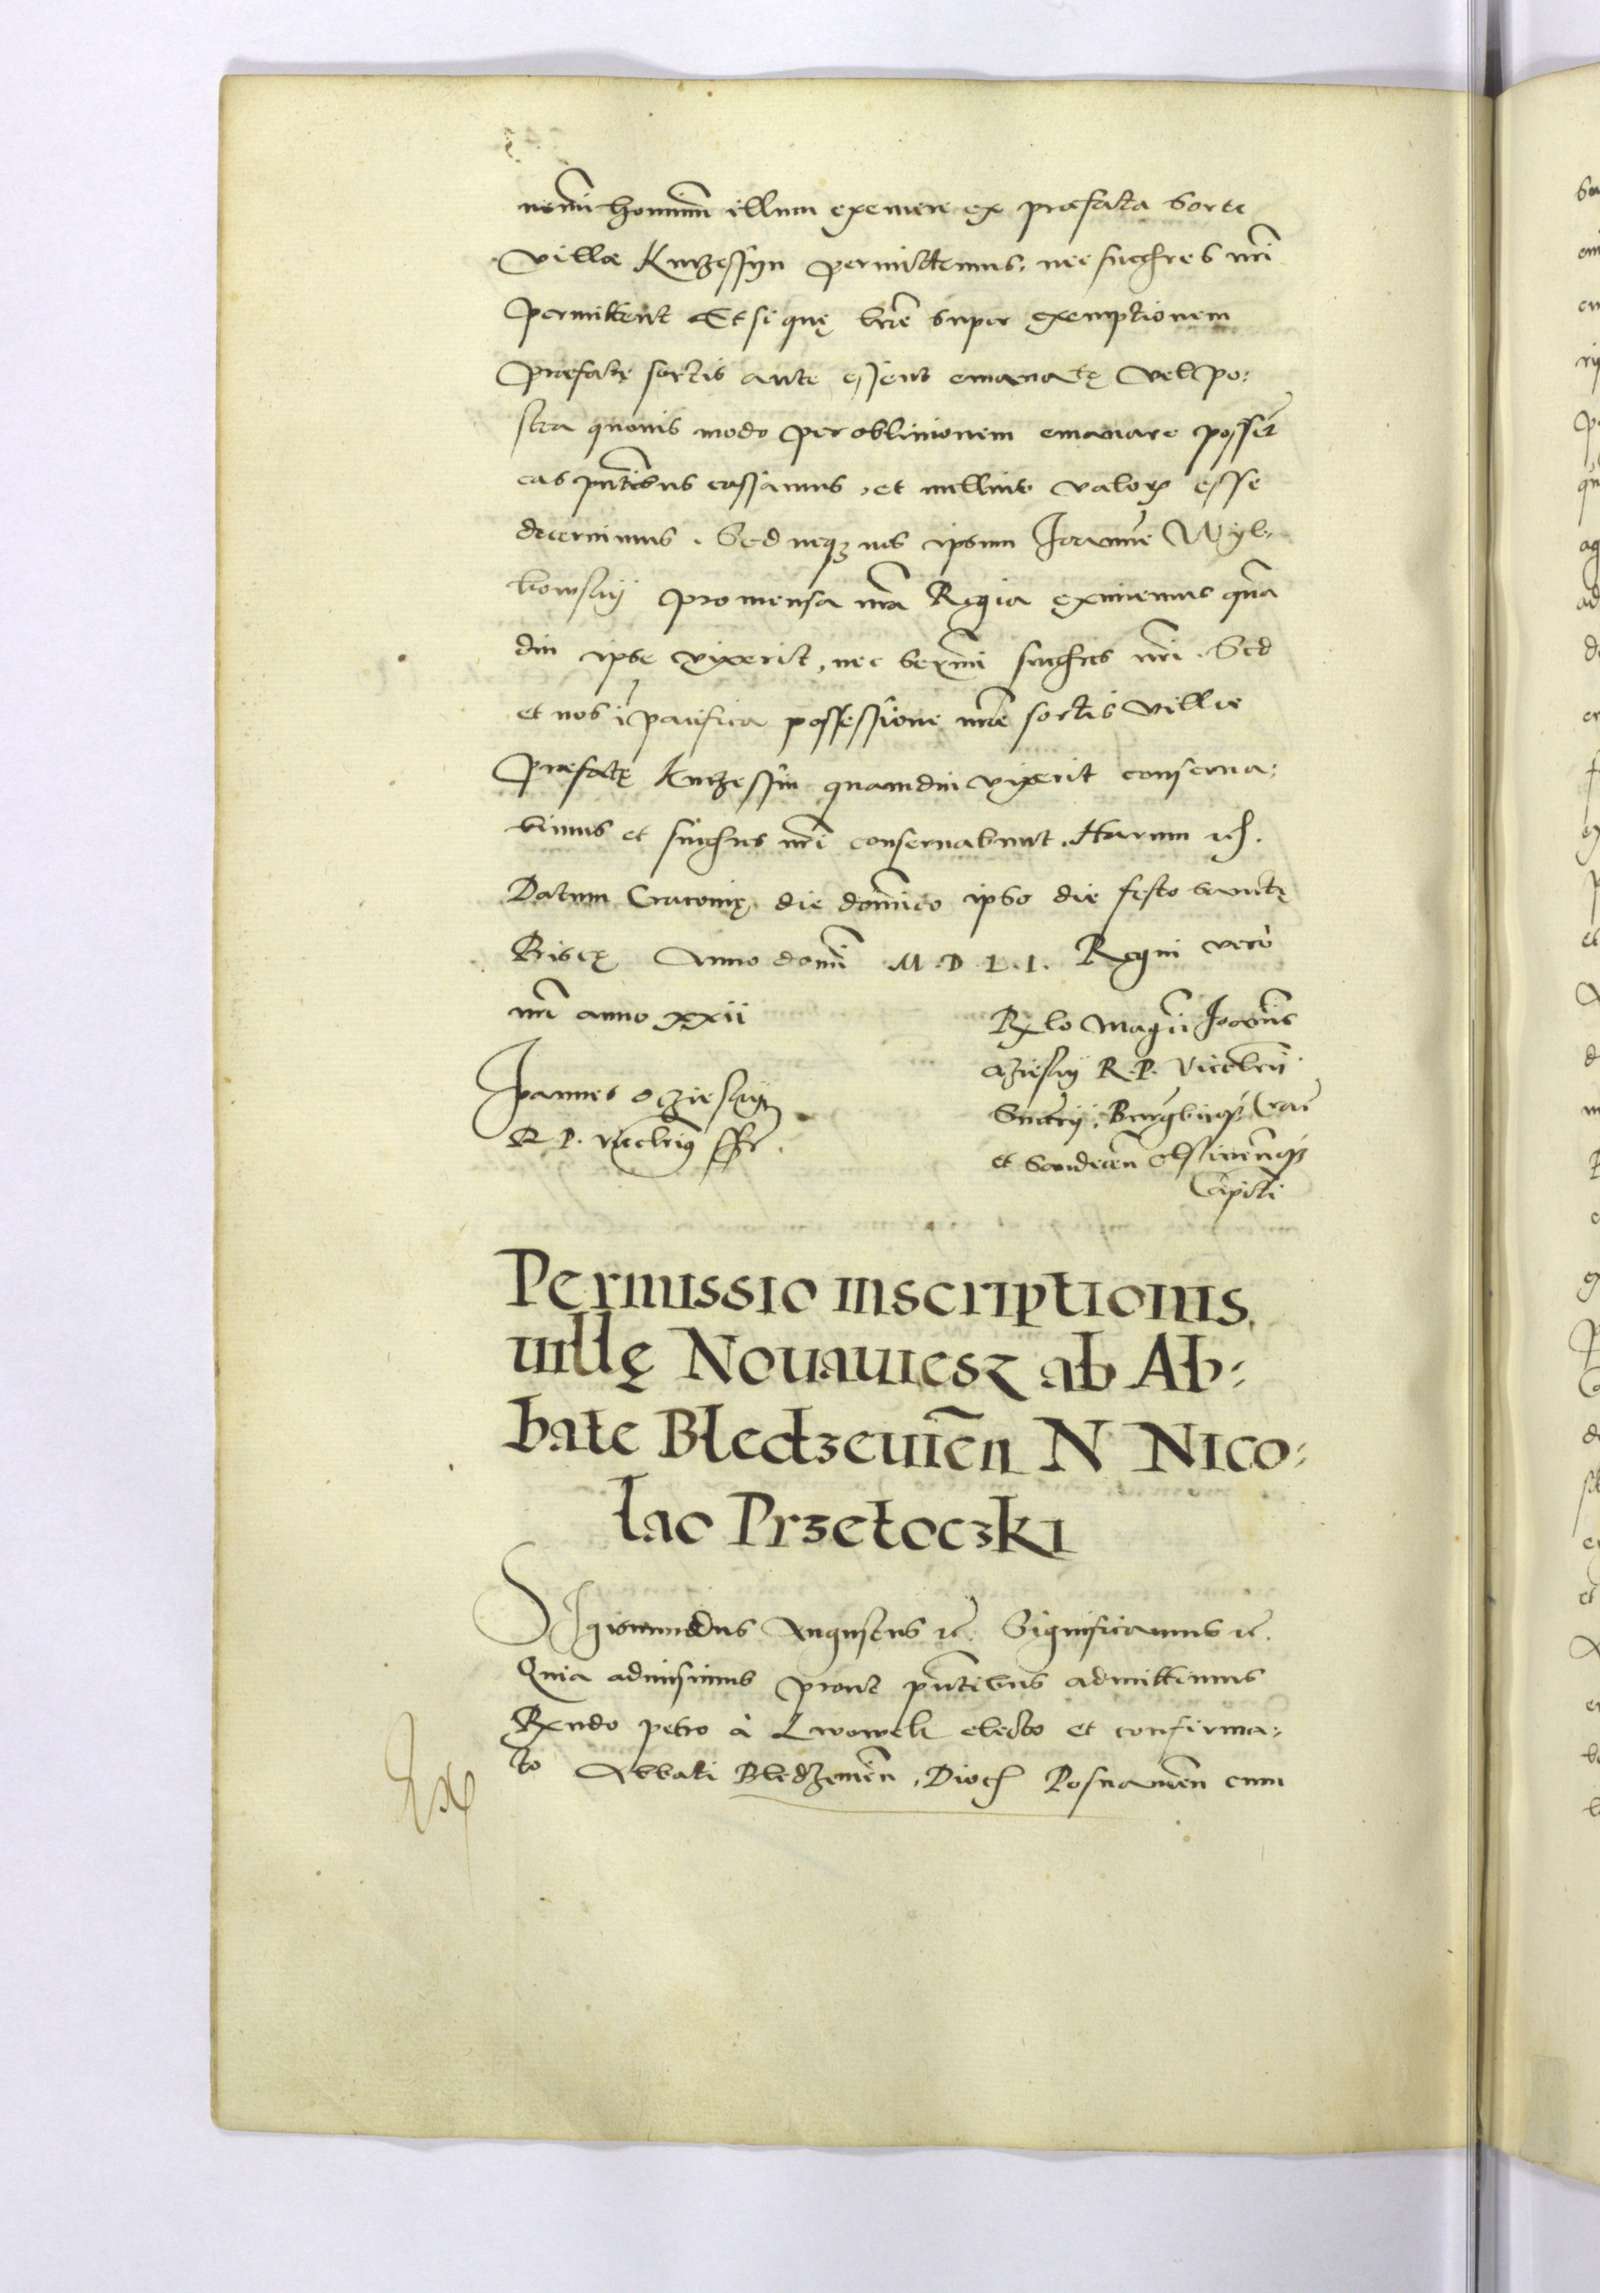 nemini hominum illum exemere ex praefata sorte
villae Kurzessyn permittemus, nec succres nri
permittent Et si quę lrae super exemptionem
Praefatę sortis ante essent emanatę vel po:
stea quovis modo per oblivionem emanare possent
eas pntibus cassamus, et nullius valoris esse
decernimus. Sed neqz nos ipsum Joannem Wyl-
kowsky pro mensa nra Regia eximemus qua
diu ipse vixerit, nec sermi succres nri. Sed
et nos in pacifica possessione nrae sortis villae
Praefatę Kurzessin quamdiu vixerit conserva:
bimus et succres nri conservabunt. Harum etc.
Datum Cracovię die dominico ipso die festo sanctę
Priscę Anno domi M. D. L. I. Regni vero
nri anno xxii
Rlo Magci Joannis
Ocziesky R. P. Vicecrii
Gnralis, Burgbięp. Crac
et Sandecen Olstinenqz
Capitei
Joannes Oczieskÿ
R P. vicecrius sst.
Permissio inscriptionis
uillę Nouawiesz ab Ab:
bate Bledzeuien N Nico:
lao Przetoczki
Sigismundus Augustus etc. Significamus etc.
Quia admisimus prout pntibus admittimus
Rndo Petro à Lwowek electo et confirma:
to Abbati Bledzewien, Dioc Posnanien cum
Ex